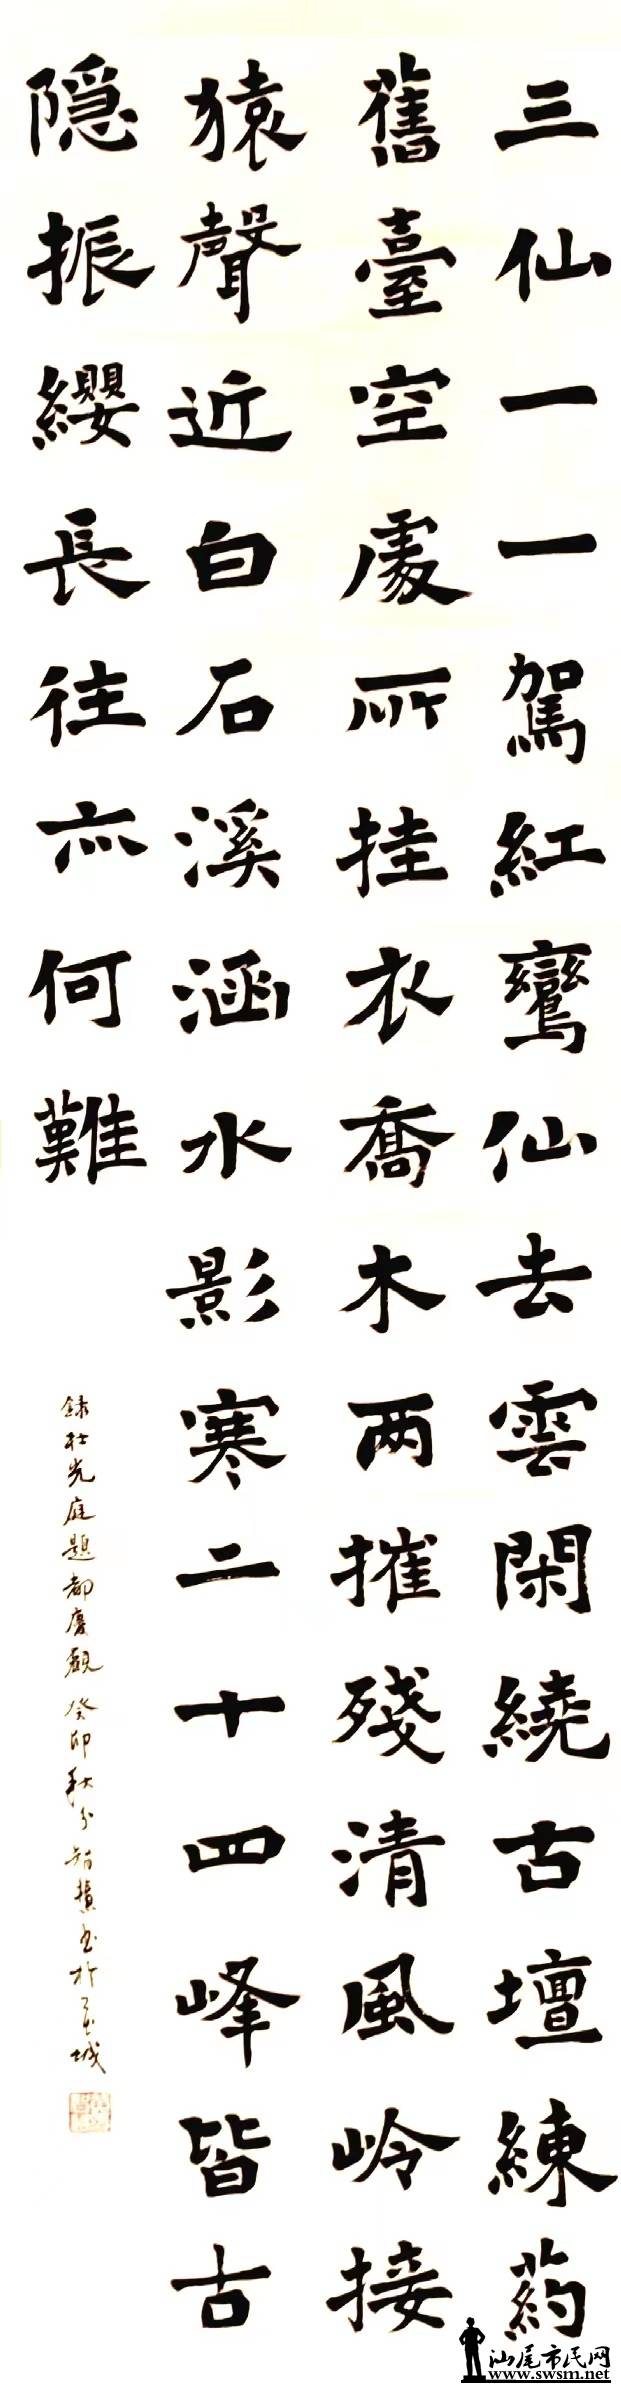 三仙一一駕紅鸞仙去雲閑繞古壇練药
舊臺空處所挂衣喬木两摧殘清風岭接
猿聲近白石溪涵水影寒二十四峰皆古
隐振纓長往亦何難
録杜光庭題都慶觀癸卯秋分
汕尾市民网
www.swsm.net